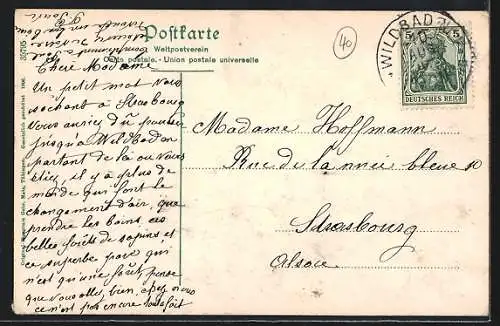 Postkarte
Weltpostverein
Carte postale. - Union postale universelle
40
WILDBAD
5 5
DEUTSCHES REICH
Chère Madame
Un petit mot vous
sachant à Strasbourg
Vous auriez dû pousser
jusqu'à Wildbad en
partant de là où vous
étiez, il y a plus de
monde qui font le
changement d'air, que
prendre les bains ces
belles forêts de sapins et
ce superbe parc qui
n'est qu'une forêt, pense
que vous allez bien, chez nous
ce n'est pas encore tout à fait
Madame Hoffmann
Rue de la nuée bleue 10
Strasbourg
Alsace